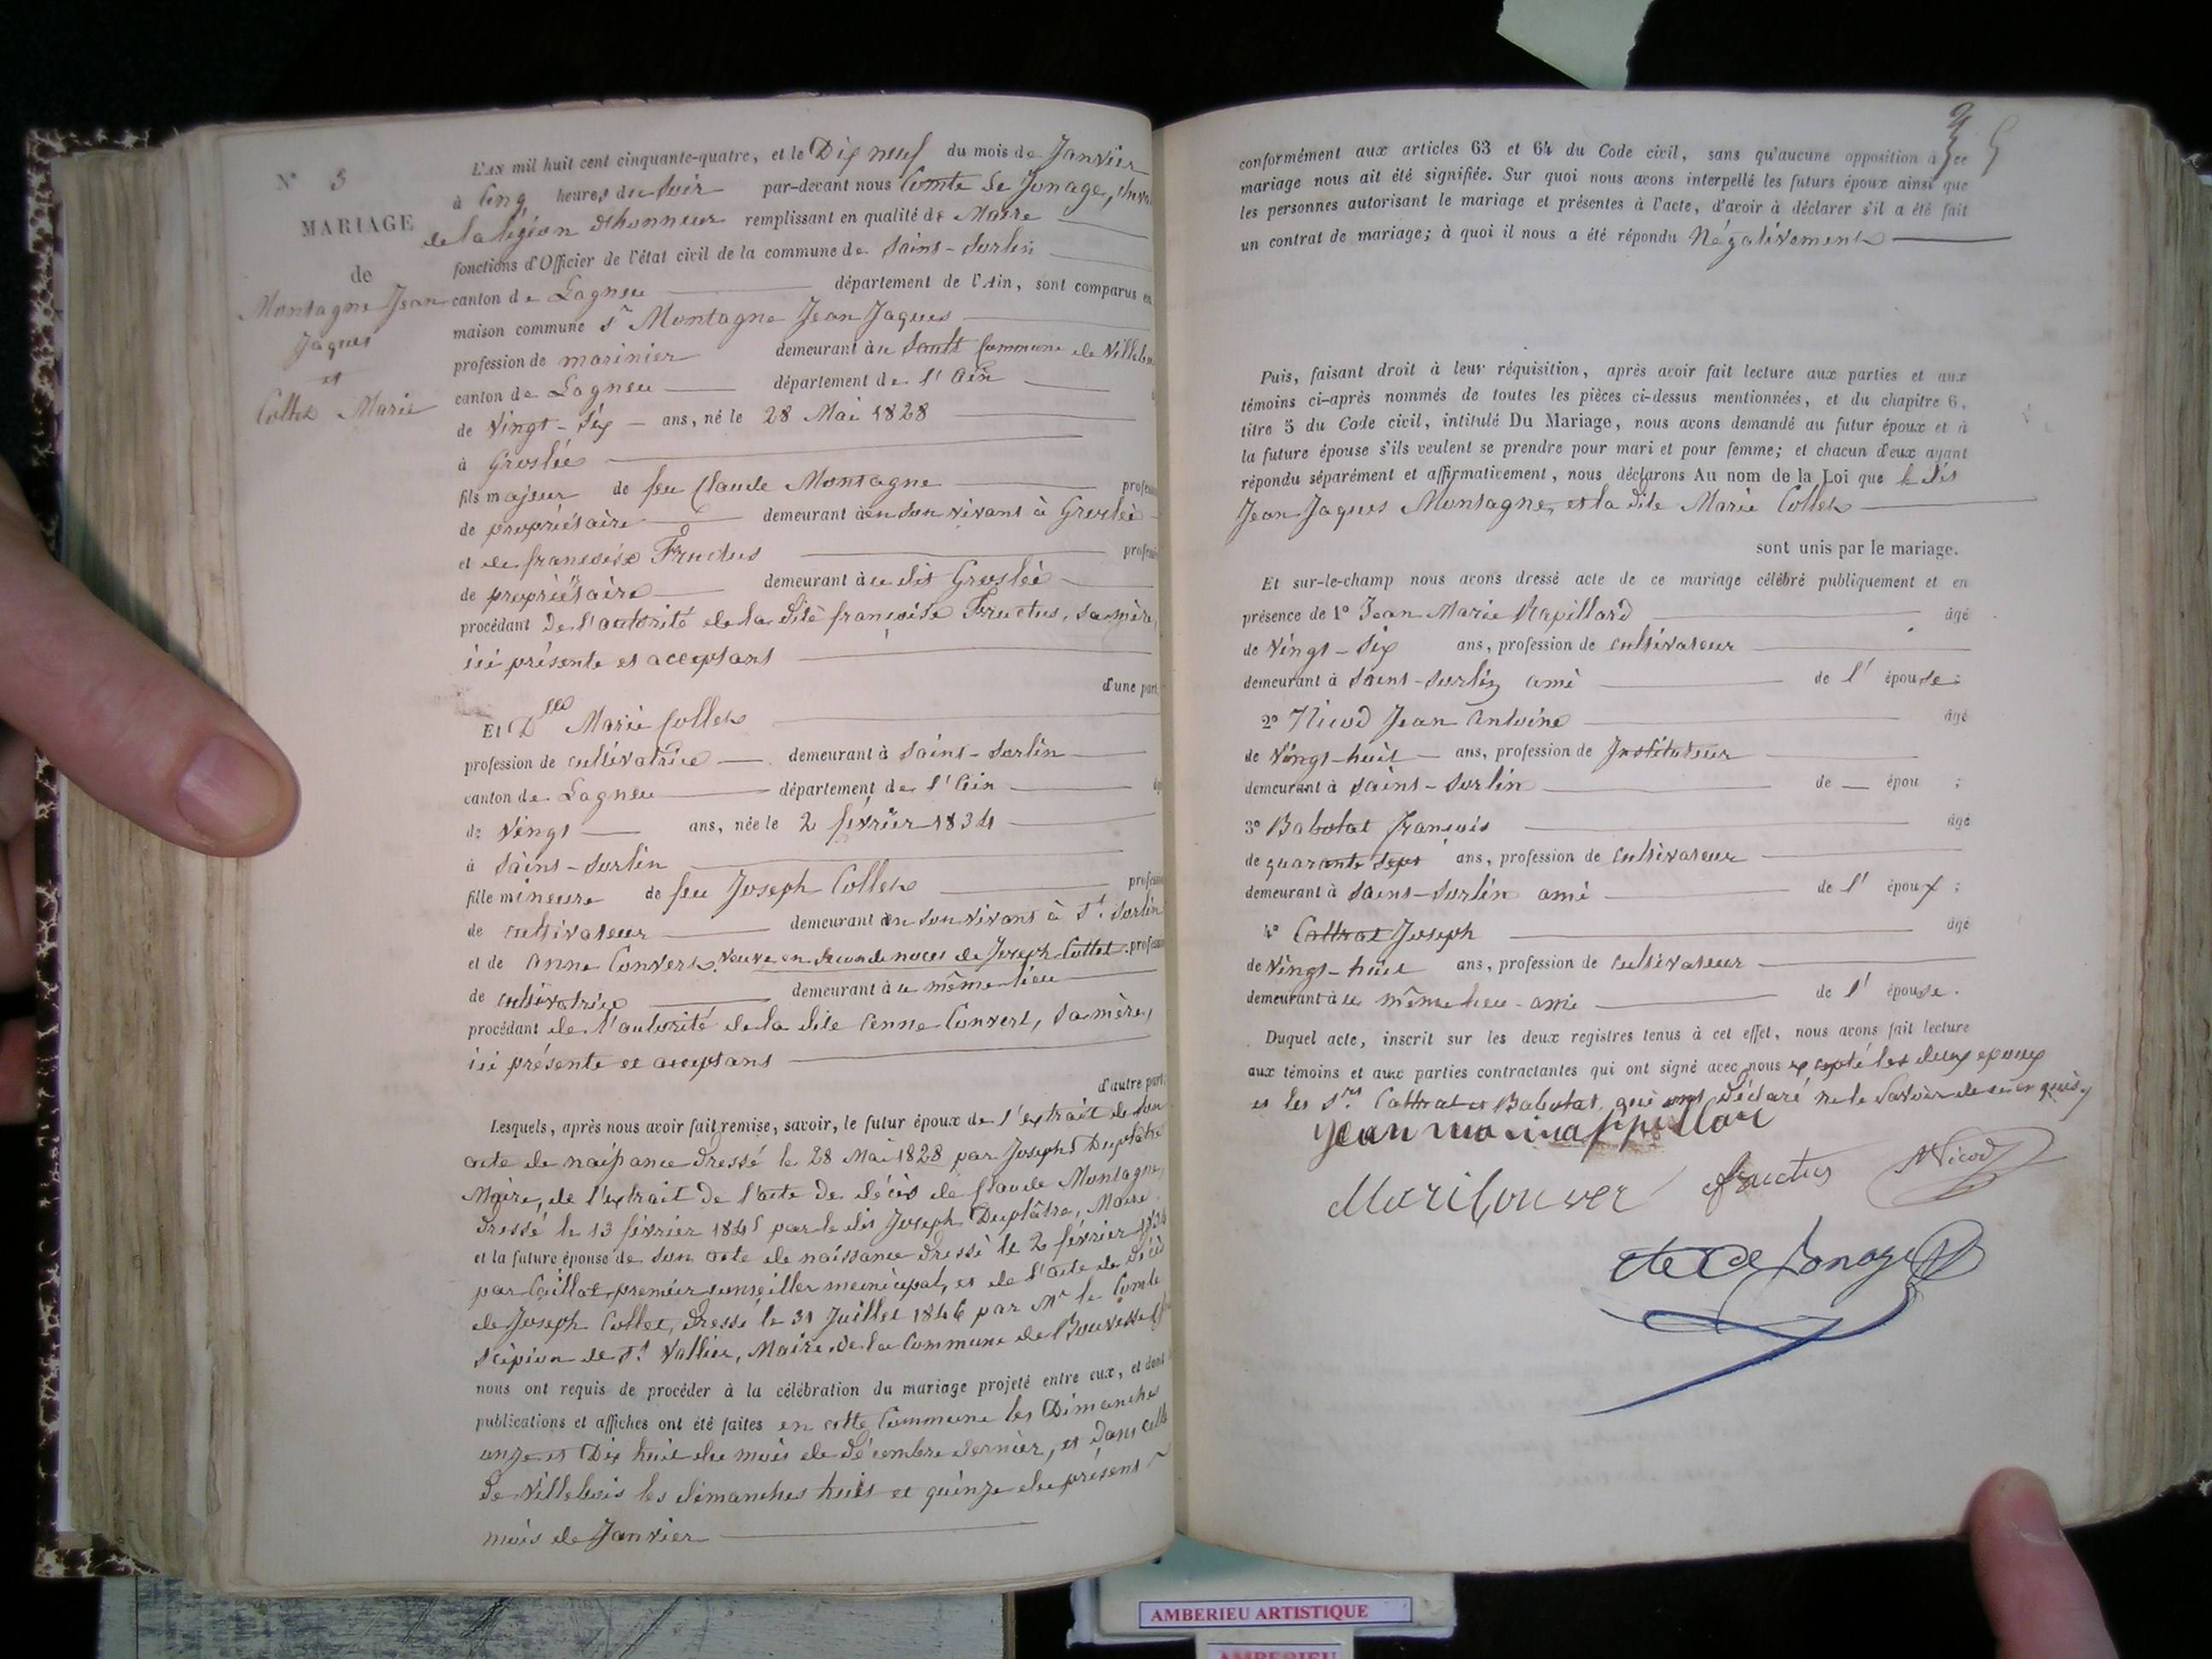 N° 3
MARIAGE
de
Montagne Jean
Jaques
et
Collet Marie
L'AN mil huit cent cinquante-quatre, et le Dix neuf du mois de Janvier
à Cinq heures du soir par-devant nous Comte de Jonage,
de la légion d'honneur remplissant en qualité de Maire
fonctions d'Officier de l'état civil de la commune de Saint-Sorlin
canton de Lagneu département de l'Ain, sont comparus en
maison commune Sr Montagne Jean Jaques
profession de marinier demeurant à commune de
canton de Lagneu département de l'Ain
de Vingt-six ans, né le 28 Mai 1828
à Groslée
fils majeur de feu Claude Montagne
de propriétaire demeurant à en son vivant à Groslée
et de françoise Fructus
de propriétaire demeurant à u dit Groslée
procédant De l'autorité de la dite françoise Fructus, sa mère,
ici présente et acceptant
d'une part
Et Dlle Marie Collet
profession de cultivatrice demeurant à Saint-Sorlin
canton de Lagneu département de l'Ain
de Vingt ans, née le 2 février 1834
à Saint-Sorlin
fille mineure de feu Joseph Collet
de cultivateur demeurant en son vivant à St. Sorlin
et de Anne Convert, veuve en seconde noces de Joseph Collet
de cultivatrice demeurant à u même lieu
procédant de l'autorité de la dite Anne Convert, sa mère,
ici présente et acceptant
d'autre part
Lesquels, après nous avoir fait remise, savoir, le futur époux de l'extrait de son
acte de naissance dressé le 28 Mai 1828 par Joseph Duplâtre
Maire, de l'extrait de l'acte de décès de Claude Montagne,
dressé le 13 février 1845 par le dit Joseph Duplâtre, Maire
et la future épouse de son acte de naissance dressé le 2 février 1834
par Caillat premier conseiller municipal, et de l'acte de décès
de Joseph Collet, dressé le 31 Juillet 1846 par Mr le Comte
Scipion de St. Vallier, Maire de la Commune de
nous ont requis de procéder à la célébration du mariage projeté entre eux, et dont
publications et affiches ont été faites en cette Commune les Dimanches
onze et Dix huit du mois de décembre dernier, et dans celle
de Villebois les dimanches huit et quinze du présent
mois de Janvier
conformément aux articles 63 et 64 du Code civil, sans qu'aucune opposition à ce
mariage nous ait été signifiée. Sur quoi nous avons interpellé les futurs époux ainsi que
les personnes autorisant le mariage et présentes à l'acte, d'avoir à déclarer s'il a été fait
un contrat de mariage; à quoi il nous a été répondu Négativement
Puis, faisant droit à leur réquisition, après avoir fait lecture aux parties et aux
témoins ci-après nommés de toutes les pièces ci-dessus mentionnées, et du chapitre 6,
titre 5 du Code civil, intitulé Du Mariage, nous avons demandé au futur époux et à
la future épouse s'ils veulent se prendre pour mari et pour femme; et chacun d'eux ayant
répondu séparément et affirmativement, nous déclarons Au nom de la Loi que le dit
Jean Jaques Montagne, et la dite Marie Collet
sont unis par le mariage.
Et sur-le-champ nous avons dressé acte de ce mariage célébré publiquement et en
présence de 1° Jean Marie Rapillard âgé
de Vingt-six ans, profession de cultivateur
demeurant à Saint-Sorlin ami de l'épouse;
2° Nicod Jean Antoine âgé
de Vingt-huit ans, profession de Instituteur
demeurant à Saint-Sorlin de — épou ;
3° Babolat françois âgé
de quarante sept ans, profession de cultivateur
demeurant à Saint-Sorlin ami de l'époux;
4° Cattrat Joseph âgé
de Vingt-huit ans, profession de cultivateur
demeurant à u même lieu ami de l'épouse.
Duquel acte, inscrit sur les deux registres tenus à cet effet, nous avons fait lecture
aux témoins et aux parties contractantes qui ont signé avec nous excepté les deux époux
et les Srs Cattrat et Babolat, qui ont déclaré ne le savoir de ce requis
Fructus
Nicod
AMBERIEU ARTISTIQUE
AMBERIEU